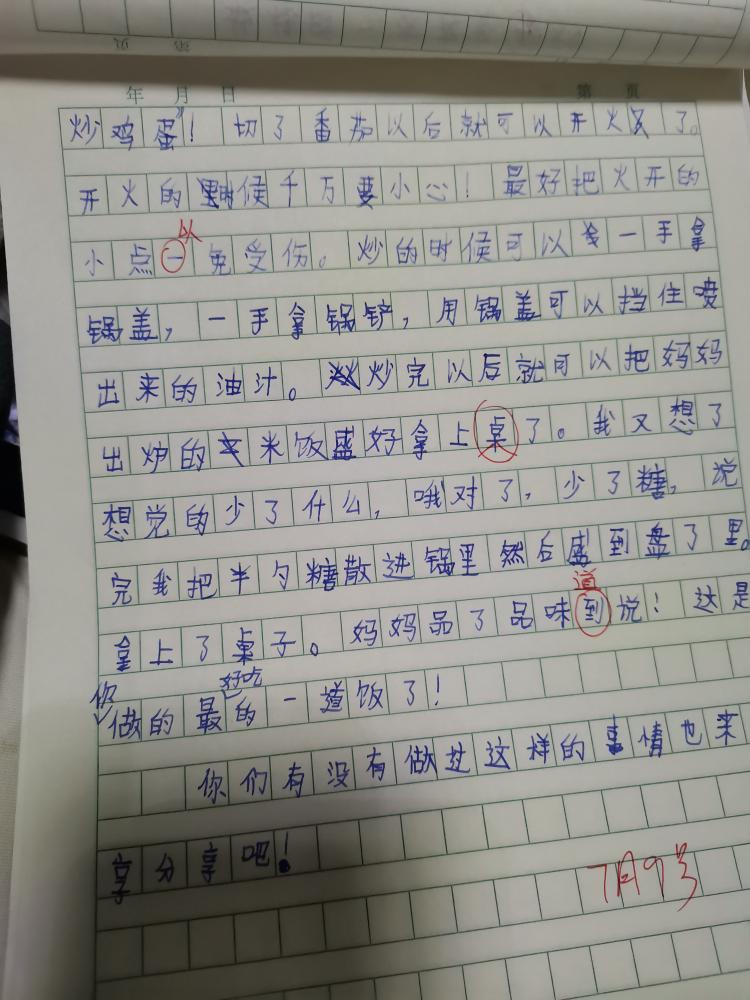 第 页
年 月 日 第 页
炒鸡蛋"! 切了番茄以后就可以开火了。
开火的时候千万要小心! 最好把火开的
以
小点一免受伤。炒的时候可以一手拿
锅盖,一手拿锅铲,用锅盖可以挡住喷
出来的油汁。炒完以后就可以把妈妈
出炉的米饭盛好拿上桌了。我又想了
想觉的少了什么,哦对了,少了糖,说
完我把半勺糖散进锅里然后盛到盘了里。
道
拿上了桌子。妈妈品了品味到说!这是
你 好吃
做的最的一道饭了!
你们有没有做过这样的事情也来
享分享吧!
7月9号